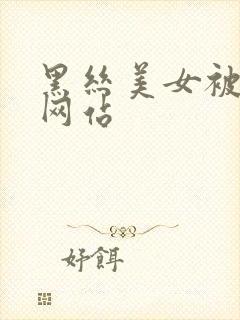 黑丝美女被
网站
好饵